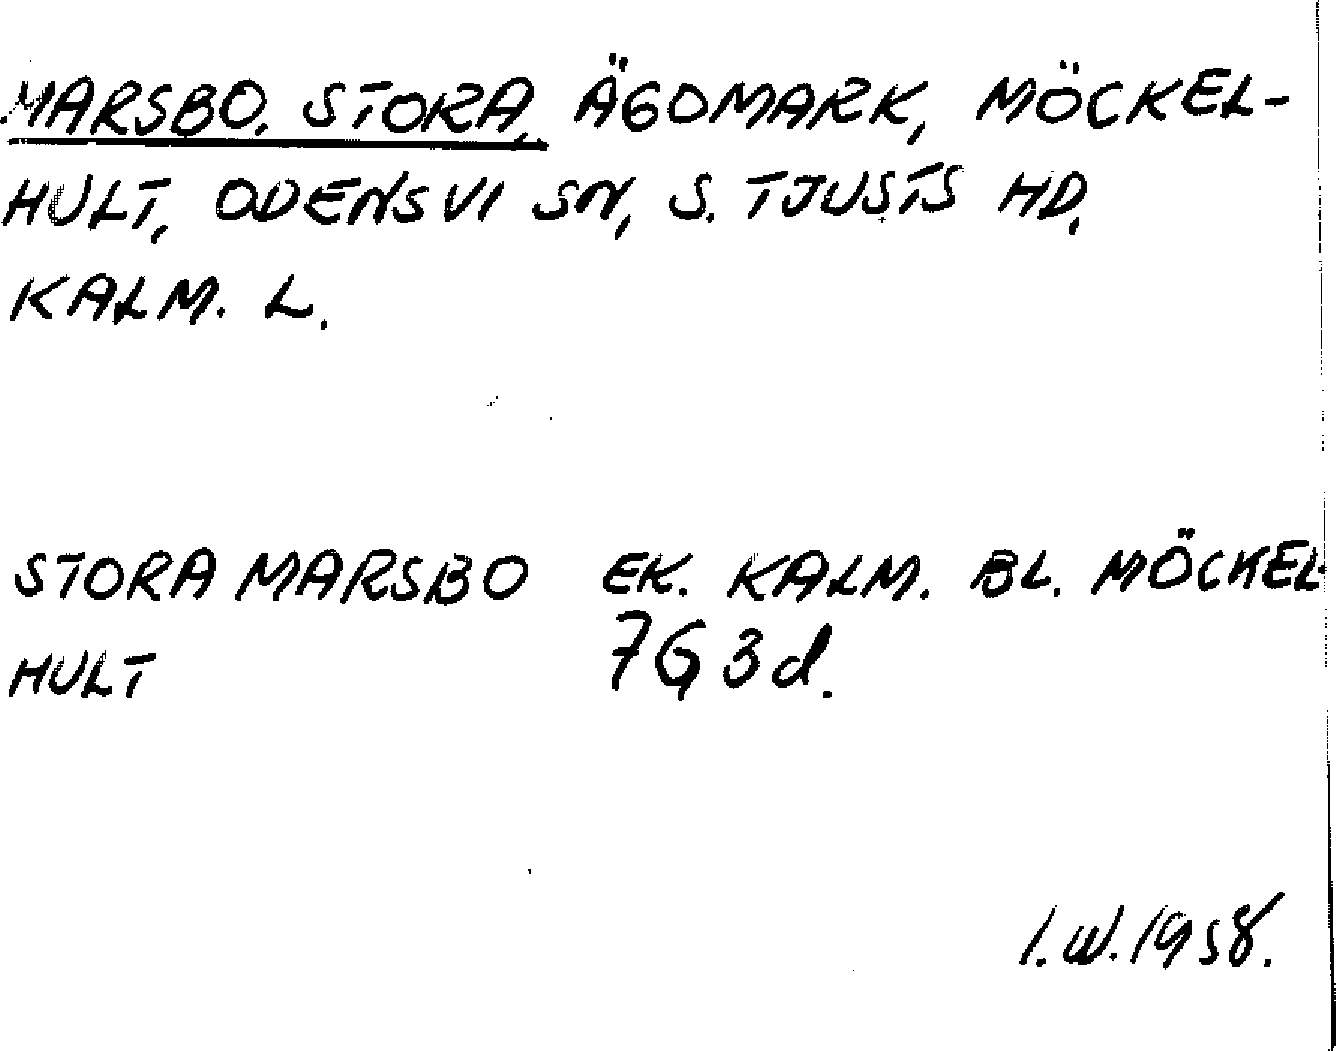 MARSBO, STORA, ÄGOMARK, MÖCKEL-
HULT, ODENSVI SN, S. TJUSTS HD,
KALM. L.
STORA MARSBO EK. KALM. BL. MÖCKEL-
HULT 7G3d.
I.W. 1958.